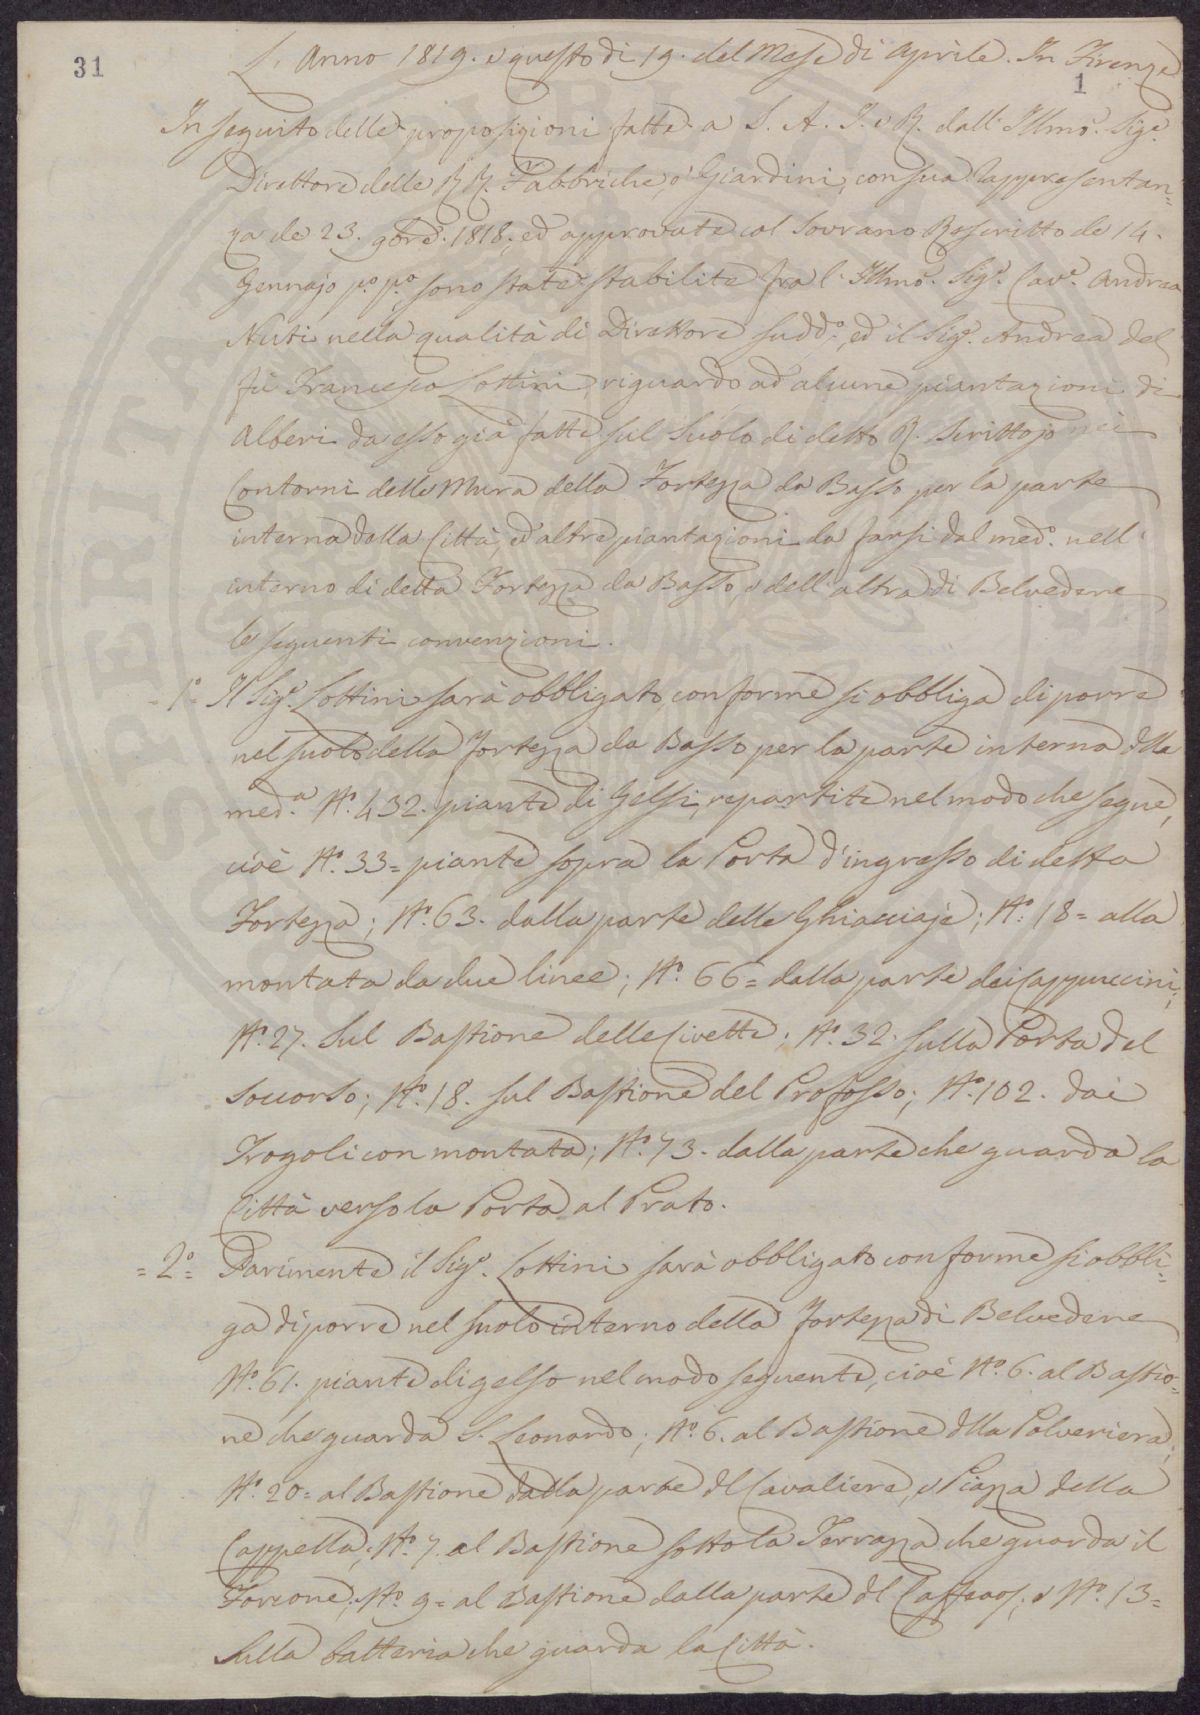 31
L'Anno 1819. e questo dì 19. del Mese di Aprile. In Firenze
1
In seguito delle proposizioni fatte a S. A. I. e R. dall' Illmo. Sigr.
Direttore delle R R. Fabbriche, e Giardini, con sua rappresentan=
za de 23. 9bre. 1818, ed approvate col Sovrano Rescritto de 14.
Gennajo po. po. sono state stabilite fra l' Illmo. Sigr. Cave. Andrea
Nuti nella qualità di Direttore sudd.o, ed il Sigr. Andrea del
fù Francesco Lottini, riguardo ad alcune piantazioni di
Alberi da esso già fatte sul Suolo di detto R. Scrittojo nei
Contorni delle Mura della Fortezza da Basso per la parte
interna della Città, ed altre piantazioni da farsi dal med.o nell'
interno di detta Fortezza da Basso, e dell' altra di Belvedere
le seguenti convenzioni.
= 1.o = Il Sigr. Lottini sarà obbligato conforme si obbliga di porre
nel suolo della Fortezza da Basso per la parte interna dlla
med.a No. 432. piante di Gelsi, repartite nel modo che segue,
cioè No. 33= piante sopra la Porta d'ingresso di detta
Fortezza; No. 63. dalla parte delle Ghiacciaje; No. 18= alla
montata da due linee; No. 66= dalla parte dei Cappuccini;
No. 27. Sul Bastione delle Civette; No. 32. sulla Porta del
Soccorso; No. 18. sul Bastione del Profosso; No. 102. dai
Trogoli con montata; No. 73. dalla parte che guarda la
Città verso la Porta al Prato.
= 2.o = Parimente il Sigr. Lottini sarà obbligato conforme si obbli=
ga di porre nel suolo interno della Fortezza di Belvedere
No. 61. piante di gelso nel modo seguente, cioè No. 6. al Bastio=
ne che guarda S. Leonardo; No. 6. al Bastione dlla Polveriera;
No. 20= al Bastione dalla parte dl Cavaliere, e Piazza della
Cappella; No. 7. al Bastione sotto la Terrazza che guarda il
Forcone; No. 9= al Bastione dalla parte dl Caffeaos; e No. 13=
sulla batteria che guarda la Città.